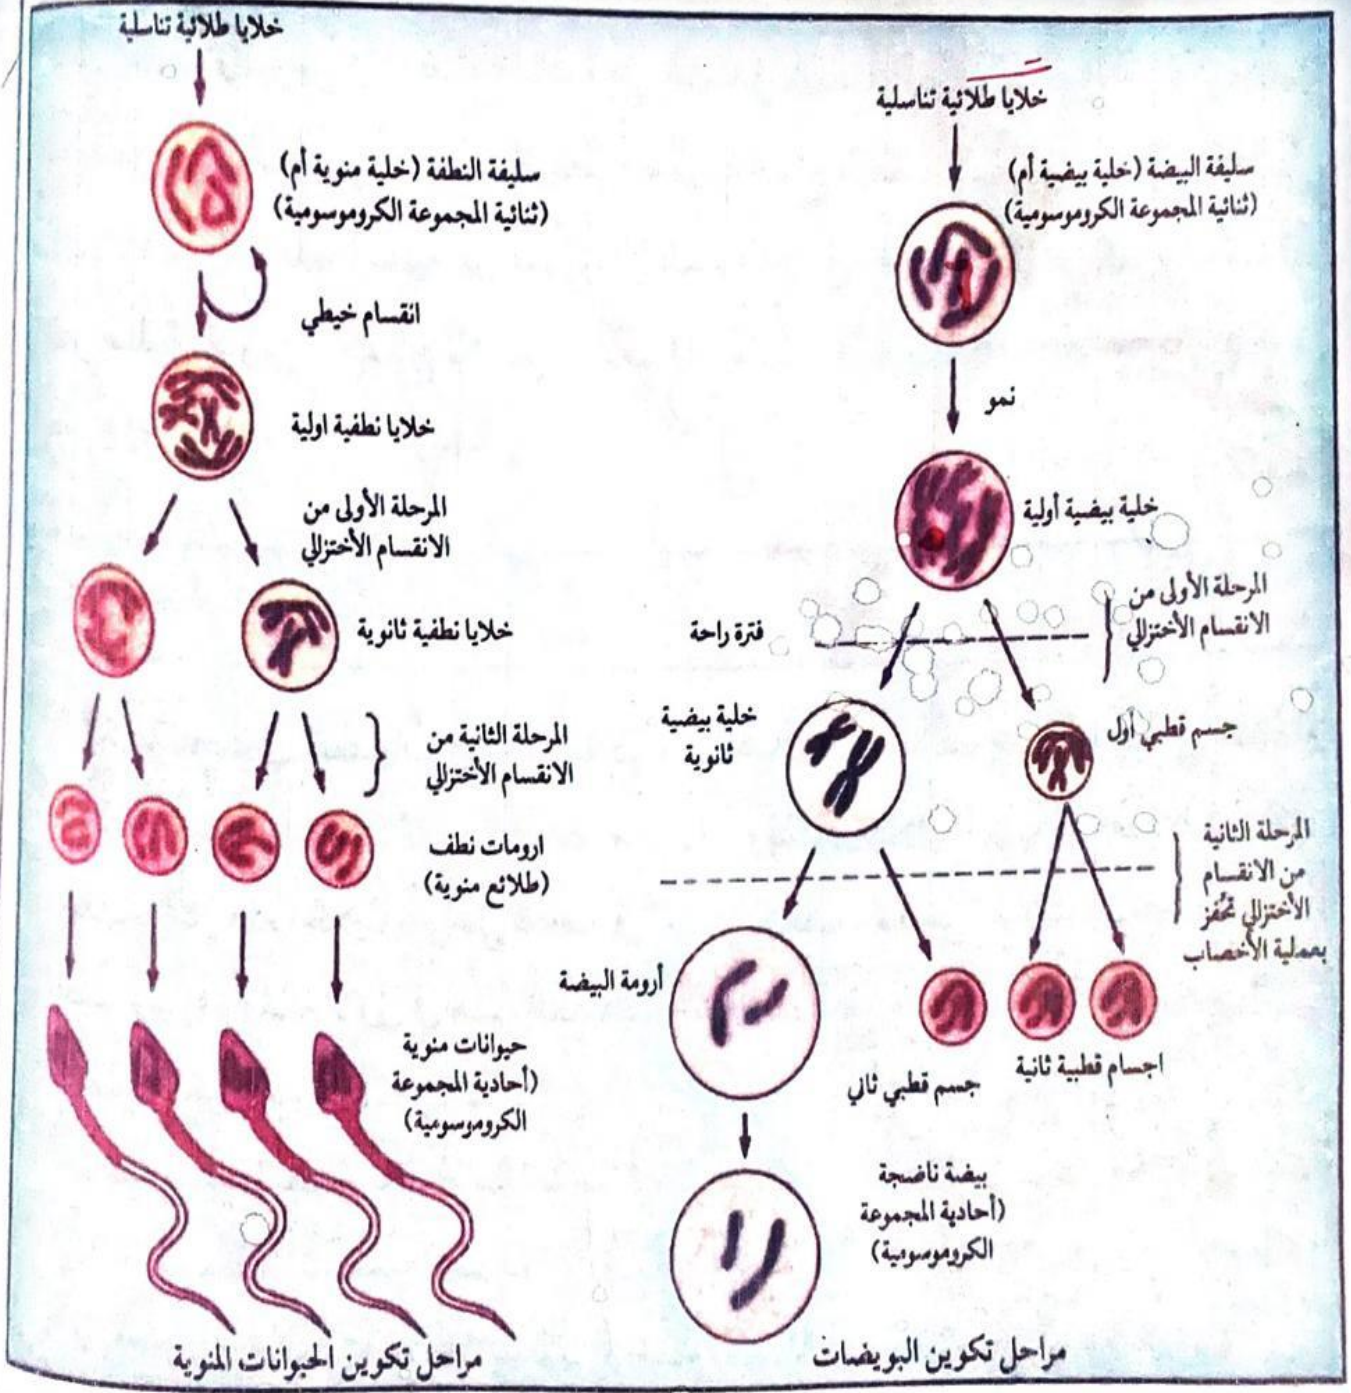 خلايا طلائية تناسلية
سليفة البيضة (خلية بيضية أم)
(ثنائية المجموعة الكروموسومية)
نمو
خلية بيضية أولية
المرحلة الأولى من
الانقسام الأختزالي
فترة راحة
خلية بيضية
ثانوية
جسم قطبي أول
المرحلة الثانية
من الانقسام
الأختزالي تحُفز
بعملية الأخصاب
أرومة البيضة
جسم قطبي ثاني
اجسام قطبية ثانية
بيضة ناضجة
(أحادية المجموعة
الكروموسومية)
مراحل تكوين البويضات
خلايا طلائية تناسلية
سليفة النطفة (خلية منوية أم)
(ثنائية المجموعة الكروموسومية)
انقسام خيطي
خلايا نطفية اولية
المرحلة الأولى من
الانقسام الأختزالي
خلايا نطفية ثانوية
المرحلة الثانية من
الانقسام الأختزالي
ارومات نطف
(طلائع منوية)
حيوانات منوية
(أحادية المجموعة
الكروموسومية)
مراحل تكوين الحيوانات المنوية